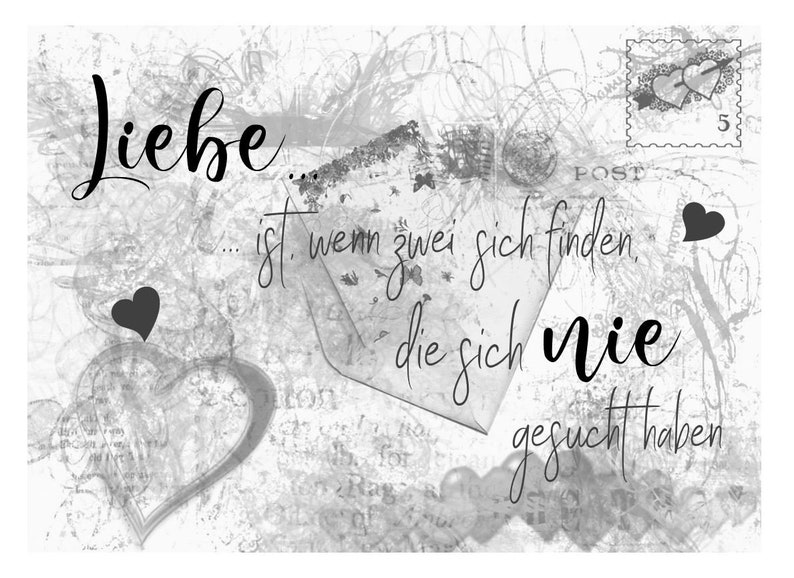 Liebe...
5
POST
... ist, wenn zwei sich finden,
die sich nie
gesucht haben